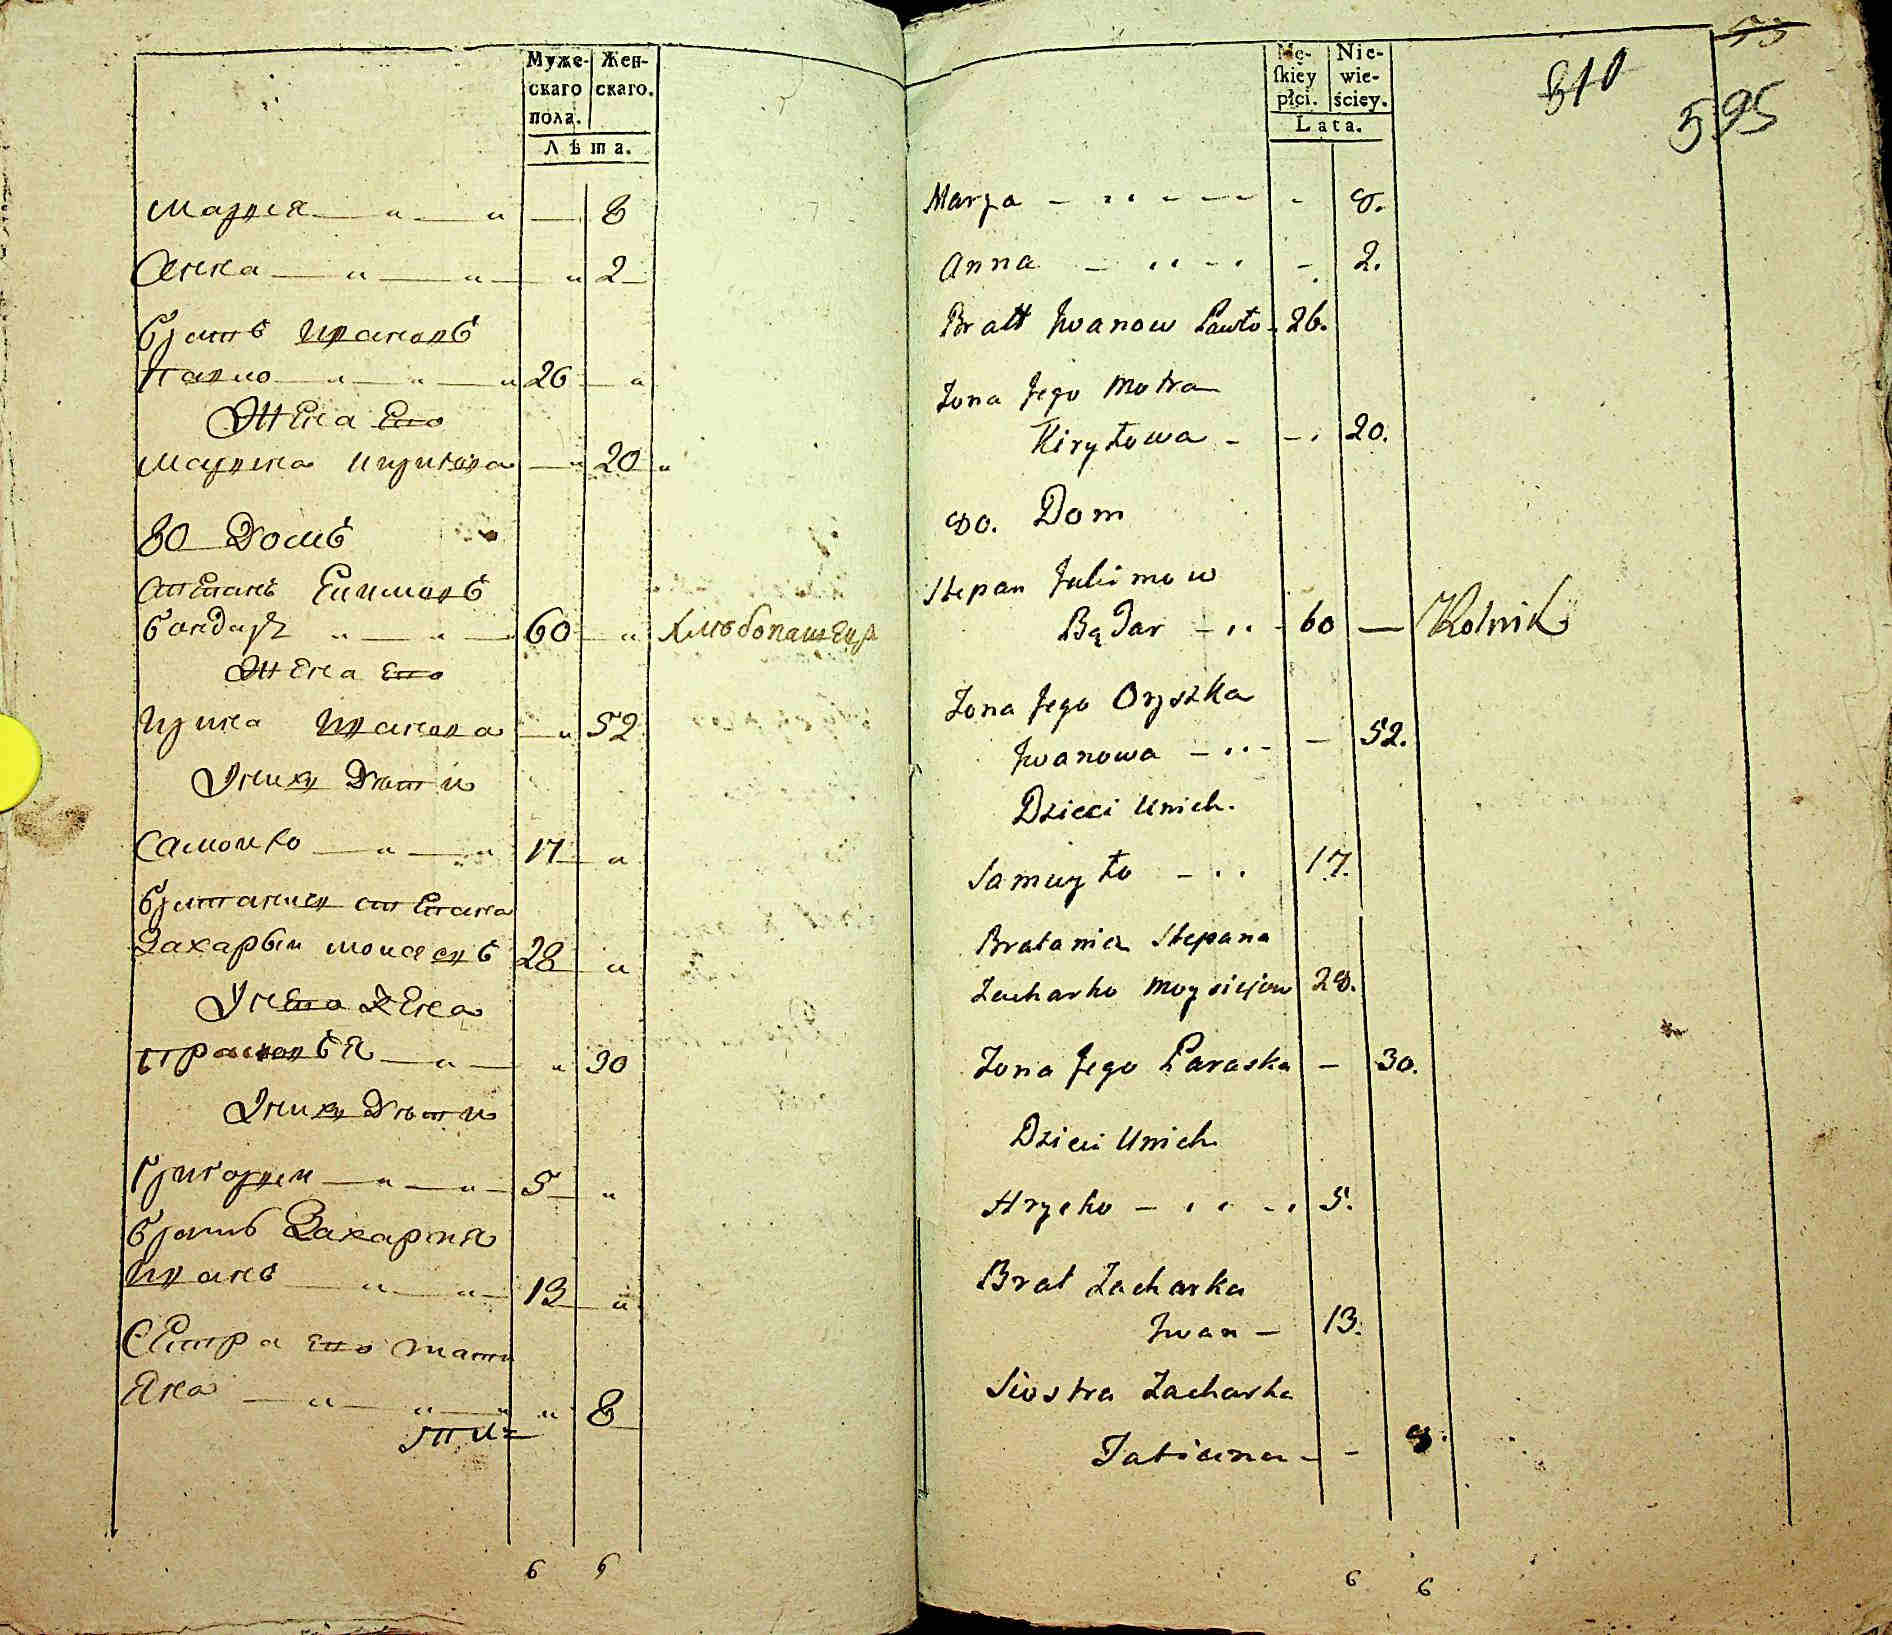 Муже-
скаго
пола.
Жен-
скаго.
Лѣта.
Мария — " — " — 8
Анна — " — " — " 2
братъ Ивановъ
Павло — " — " — " 26 — "
Жена Его
Матрина Кирилова — " 20 "
80 Домъ
Степанъ Ехимовъ
бондарь " — " — 60 — " Хлѣбопашецъ
Жена Его
Ирина Иванова — " 52
У нихъ Дѣти
Самойло — " — " 17 — "
братаничъ Степана
Захарьи Моисеевъ 28 — "
У него Жена
Прасковья — " — " 30
У нихъ Дѣти
Григорий — " — " — 5 — "
братъ Захария
Иванъ — " — " — 13 — "
Сестра Его Тати
Яна — " — " — " " 8
6 6
Mę-
skiey
płci.
Nie-
wie-
ściey.
Lata.
53
810
595
Marya - - - - - 8.
Anna - - - - 2.
Bratt Jwanow Pawło - 26.
Zona Jego Motra
Kiryłowa - - - 20.
80. Dom
Stepan Juchimow
Bądar - - - 60 — Rolnik
Zona Jego Oryszka
Jwanowa - - - 52.
Dzieci Unich.
Samuyło - - - 17.
Bratanicz Stepana
Zacharko Moysiejow 28.
Zona Jego Paraska - 30.
Dzieci Unich
Hrycko - - - - 5.
Brat Zacharka
Jwan - 13.
Siostra Zacharka
Tatiana - - 8.
6 6